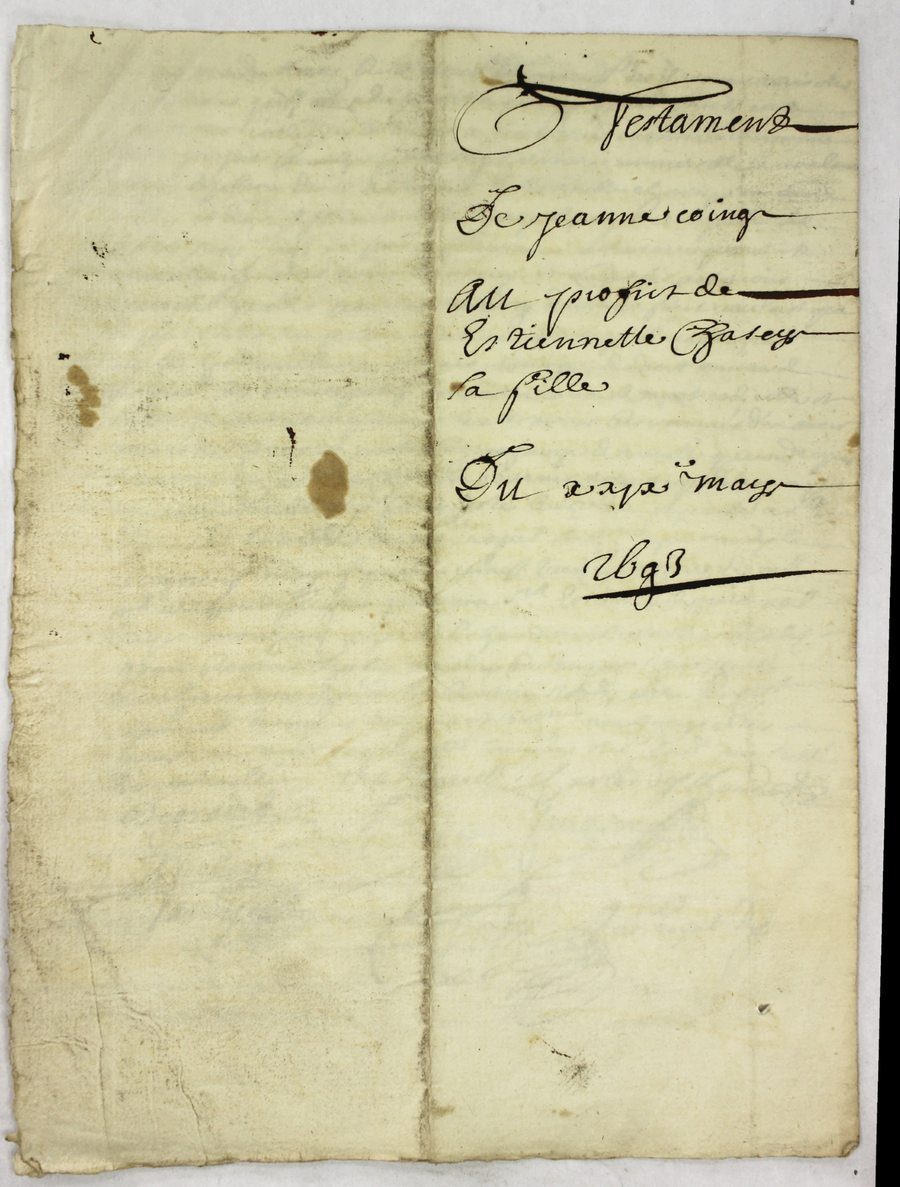 Testament
De jeanne coing
Au profit de
Estiennette Chasey
sa fille
Du xxix.e may
1693